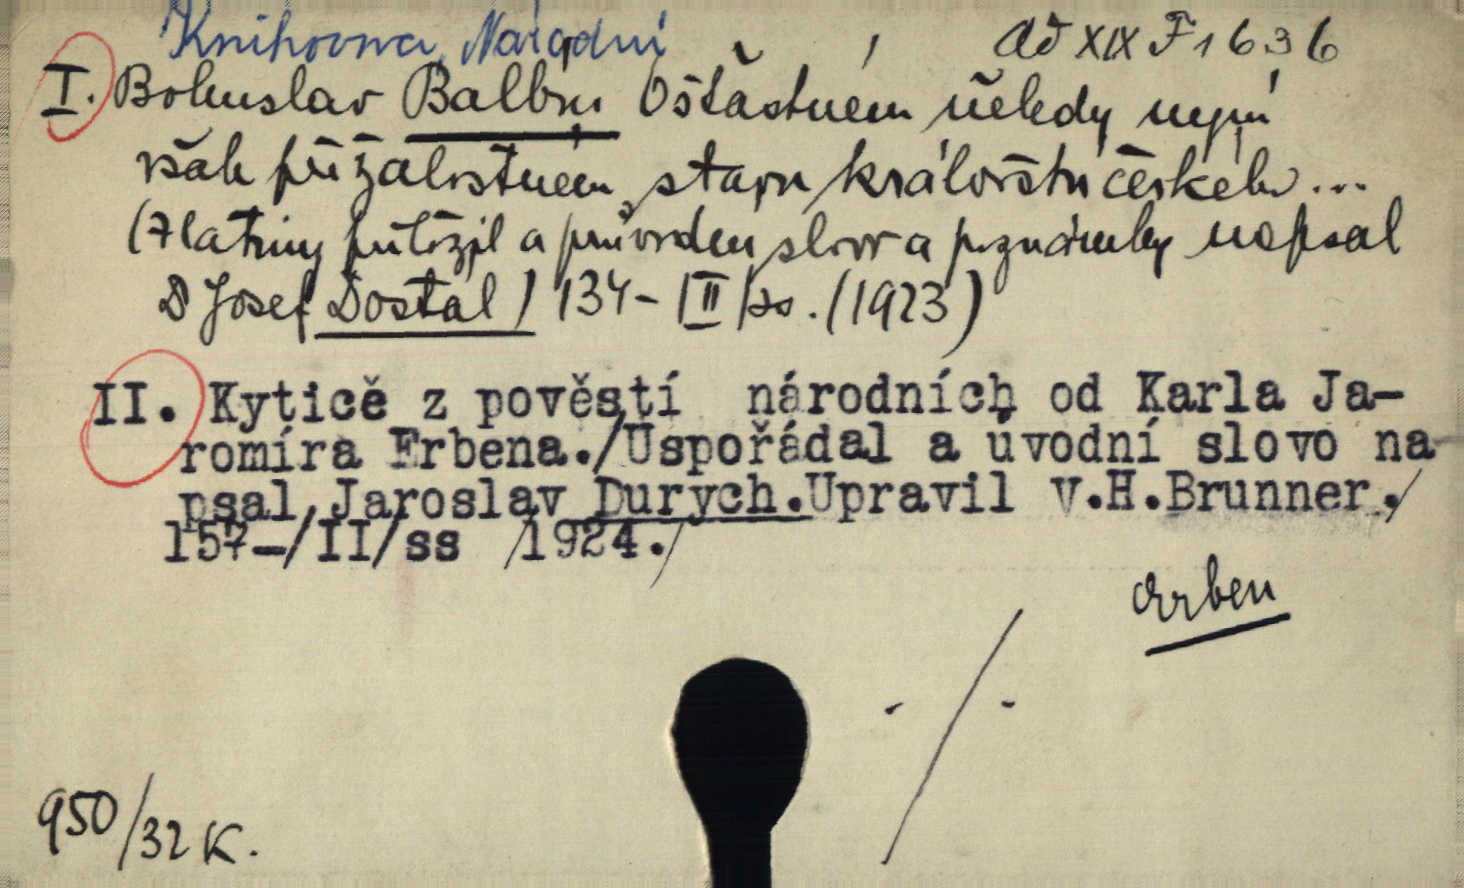 Knihovna Národní
Ad XIX F 1636
I. Bohuslav Balbín O šťastném někdy nyní
však přežalostném stavu království českého ...
(Z latiny přeložil a průvodem slov a poznámky napsal
Dr Josef Dostál) 134-/II/ss. (1923)
II. Kyticě z pověstí národních od Karla Ja-
romíra Erbena./Uspořádal a úvodní slovo na
psal Jaroslav Durych.Upravil V.H.Brunner./
157-/II/ss /1924./
Erben
-/-
950/32 K.